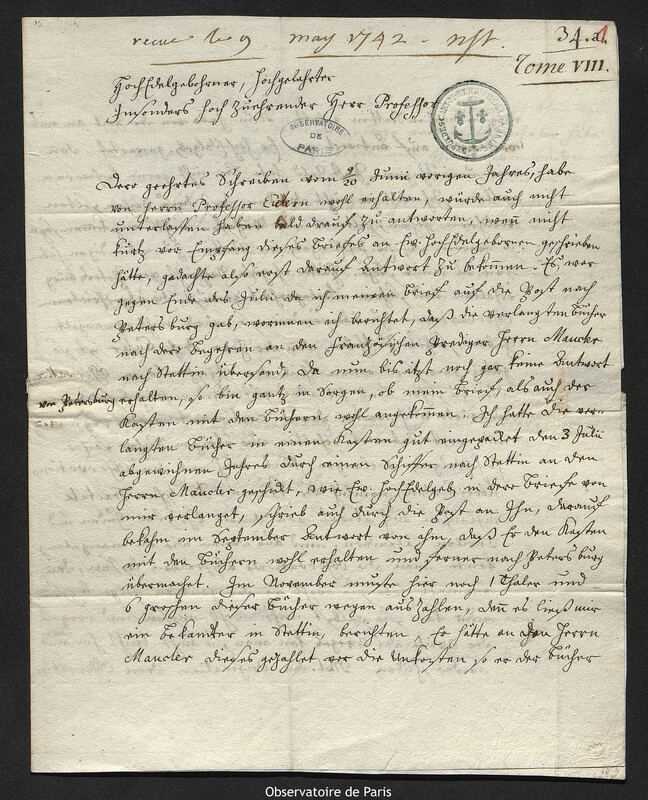 recue le 9 may 1742 - nst.
34.a.
Tome VIII.
HochEdelgebohrner, Hochgelahrter
Insonders hoch zuehrender Herr Professor
OBSERVATOIRE
DE
PARIS
Dero geehrtes Schreiben vom 9/20 Junii vorigen Jahres, habe
von Herrn Professor wohl erhalten, würde auch nicht
unterlassen haben bald drauf zu antworten, wen nicht
kurtz vor Empfang dieses Briefes an Ew. HochEdelgebornen geschrieben
hätte, gedachte also erst darauf Antwort zu bekommen. Es war
gegen Ende des Julii da ich meinen Brief auf die Post nach
Petersburg gab, worinnen ich berichtet, daß die verlangten Bücher
nach dero Begehren an den Französischen Prediger Herrn Maucler
nach Stettin übersand. Da nun bis itzt noch gar keine Antwort
von Petersburg erhalten, so bin gantz in Sorgen, ob mein Brief, als auch der
Kasten mit den Büchern wohl angekommen. Ich hatte die ver-
langten Bücher in einen Kasten gut eingepacket den 3 Julii
abgewichnen Jahres durch einen Schiffer nach Stettin an den
Herrn Maucler geschickt, wie Ew. HochEdelgeb. in dero Briefe von
mir verlanget, schrieb auch durch die Post an Ihn, darauf
bekahm im September Antwort von ihm, daß Er den Kasten
mit den Büchern wohl erhalten und ferner nach Petersburg
übermachet. Im November muste hier noch 1 Thaler und
6 groschen dieser Bücher wegen auszahlen, den es ließ mir
ein bekandter in Stettin, berichten, Er hätte an den Herrn
Maucler dieses gezahlet vor die Unkosten so er der Bücher
Observatoire de Paris